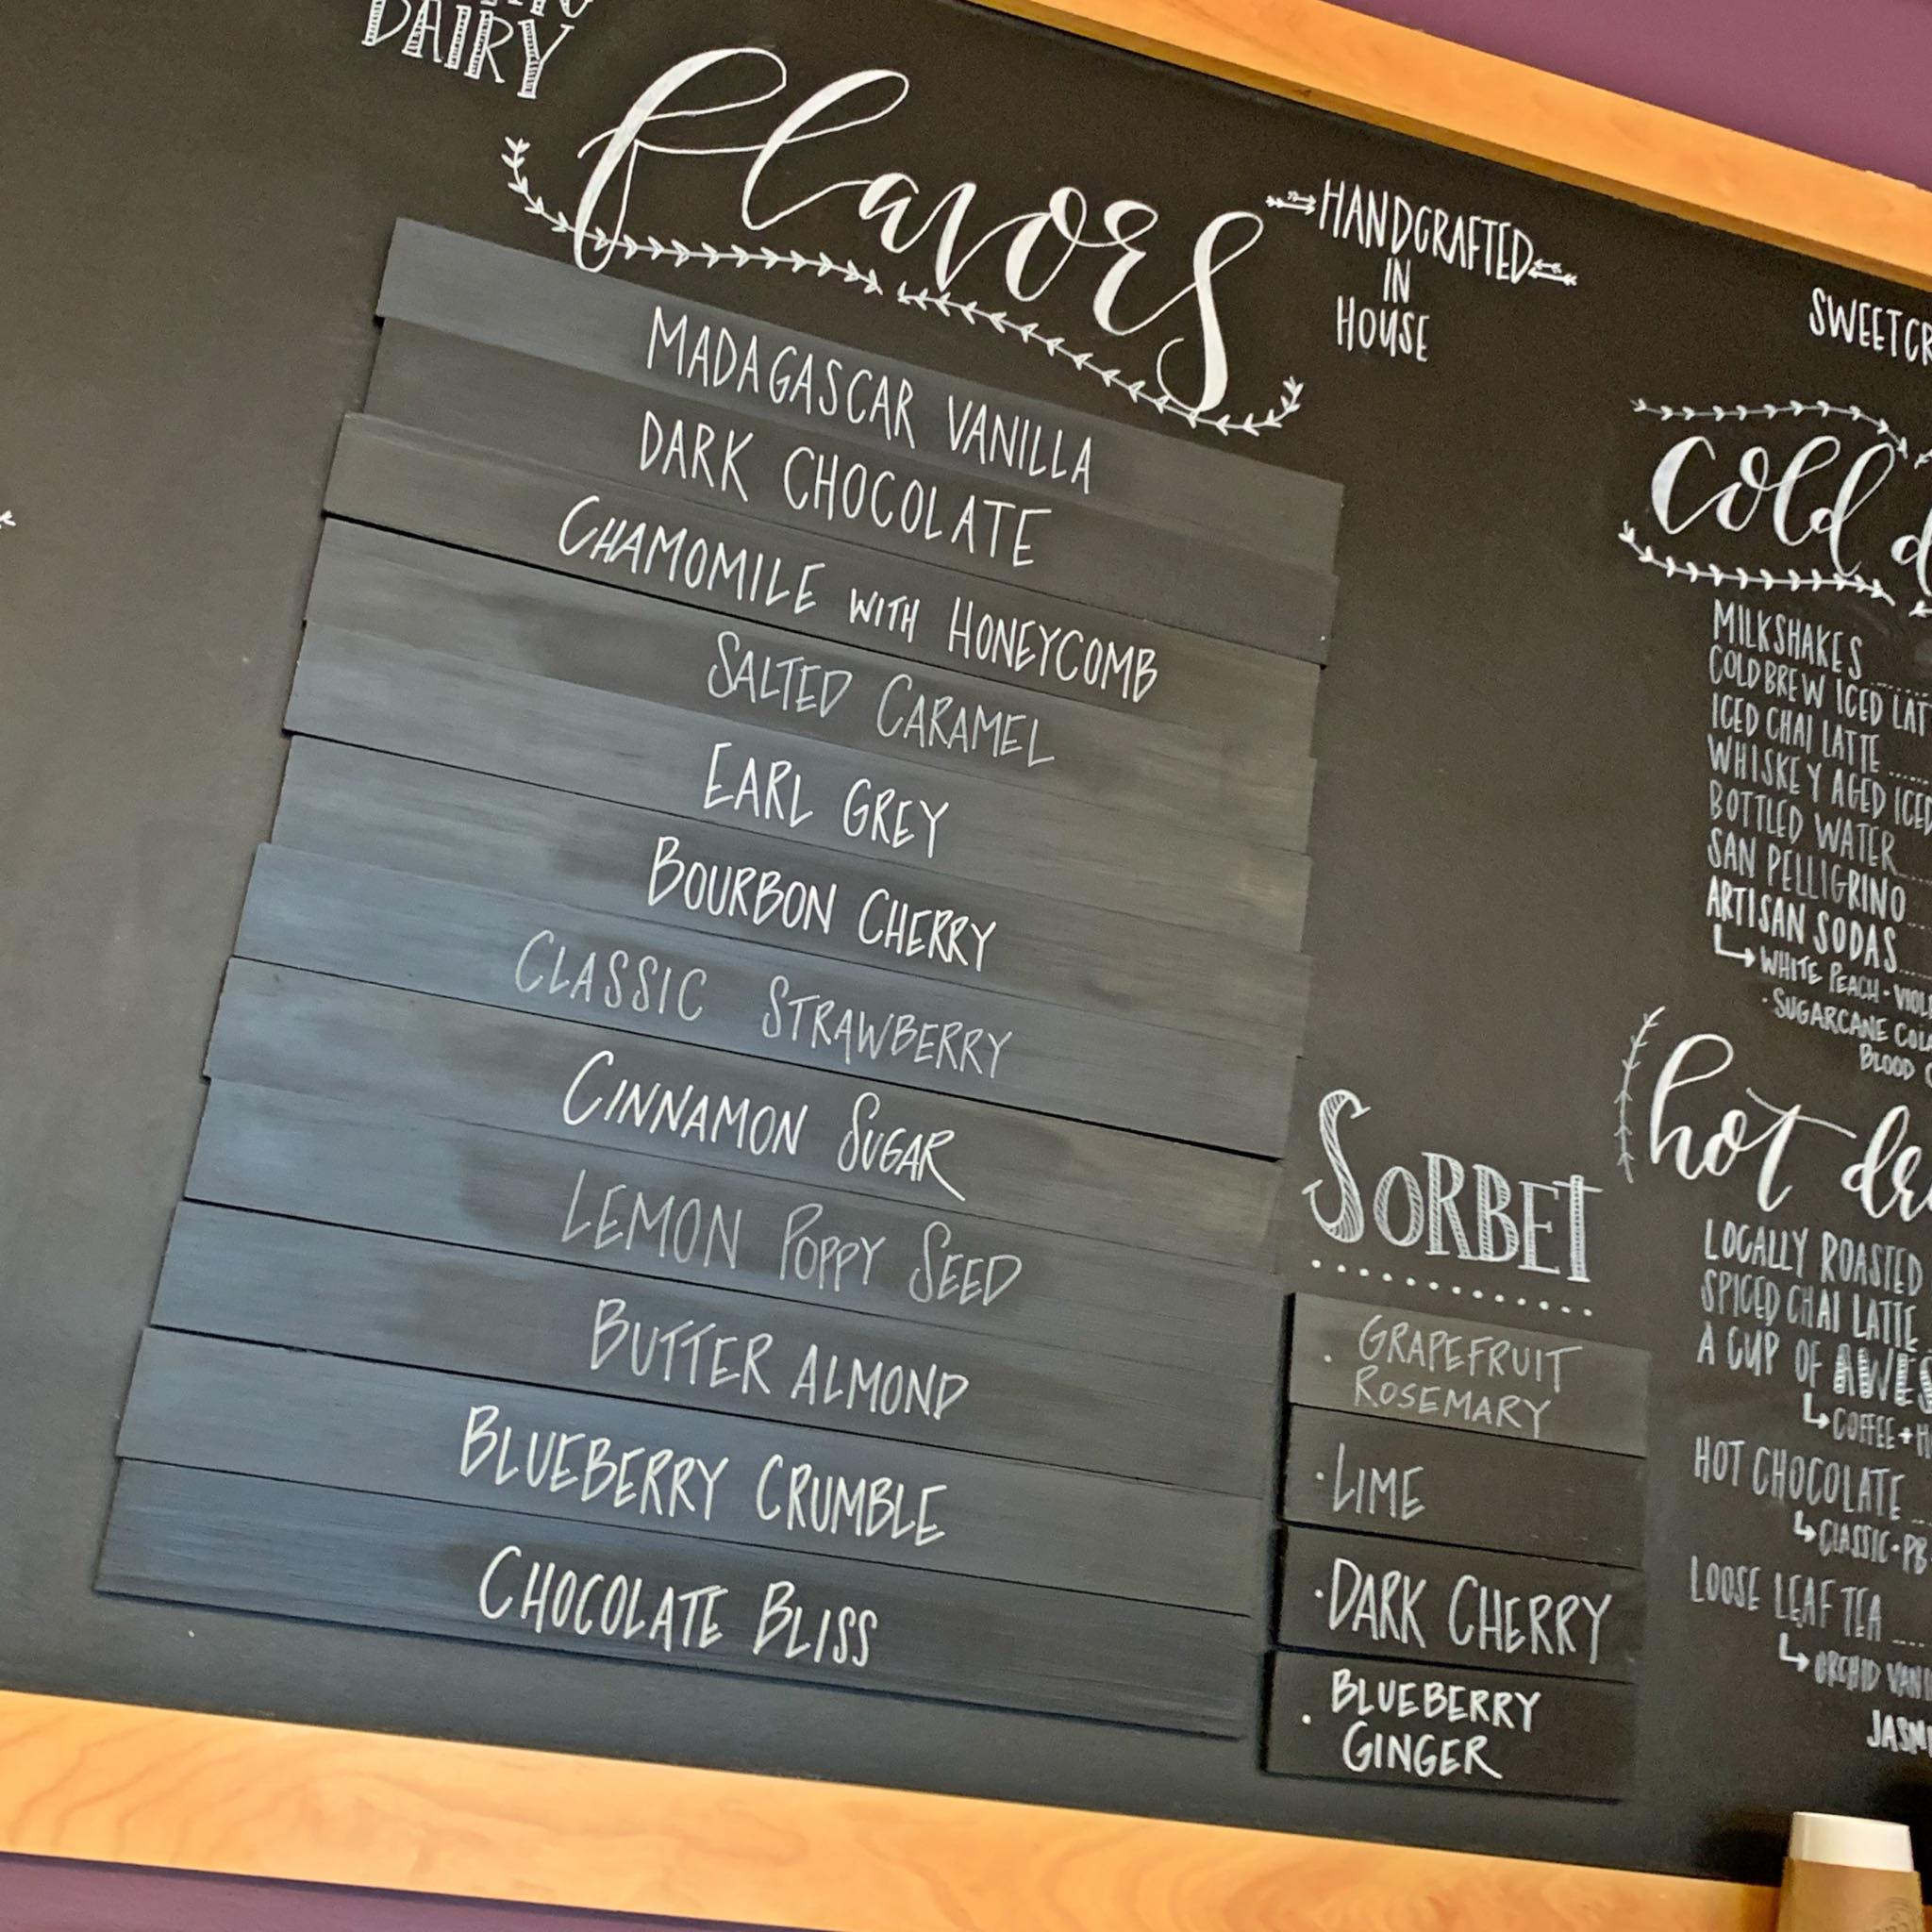 DAIRY
flavors
HANDCRAFTED
IN
HOUSE
MADAGASCAR VANILLA
DARK CHOCOLATE
CHAMOMILE WITH HONEYCOMB
SALTED CARAMEL
EARL GREY
BOURBON CHERRY
CLASSIC STRAWBERRY
CINNAMON SUGAR
LEMON POPPY SEED
BUTTER ALMOND
BLUEBERRY CRUMBLE
CHOCOLATE BLISS
SORBET
· GRAPEFRUIT
ROSEMARY
· LIME
· DARK CHERRY
· BLUEBERRY
GINGER
cold
MILKSHAKES
COLD BREW ICED
ICED CHAI LATTE
WHISKEY AGED ICED
BOTTLED WATER
SAN PELLIGRINO
ARTISAN SODAS
↳ WHITE PEACH ·
· SUGARCANE
BLOOD
hot
LOCALLY ROASTED
SPICED CHAI LATTE
A CUP OF
↳ COFFEE +
HOT CHOCOLATE
↳ CLASSIC · PB
LOOSE LEAF TEA
↳ ORCHID